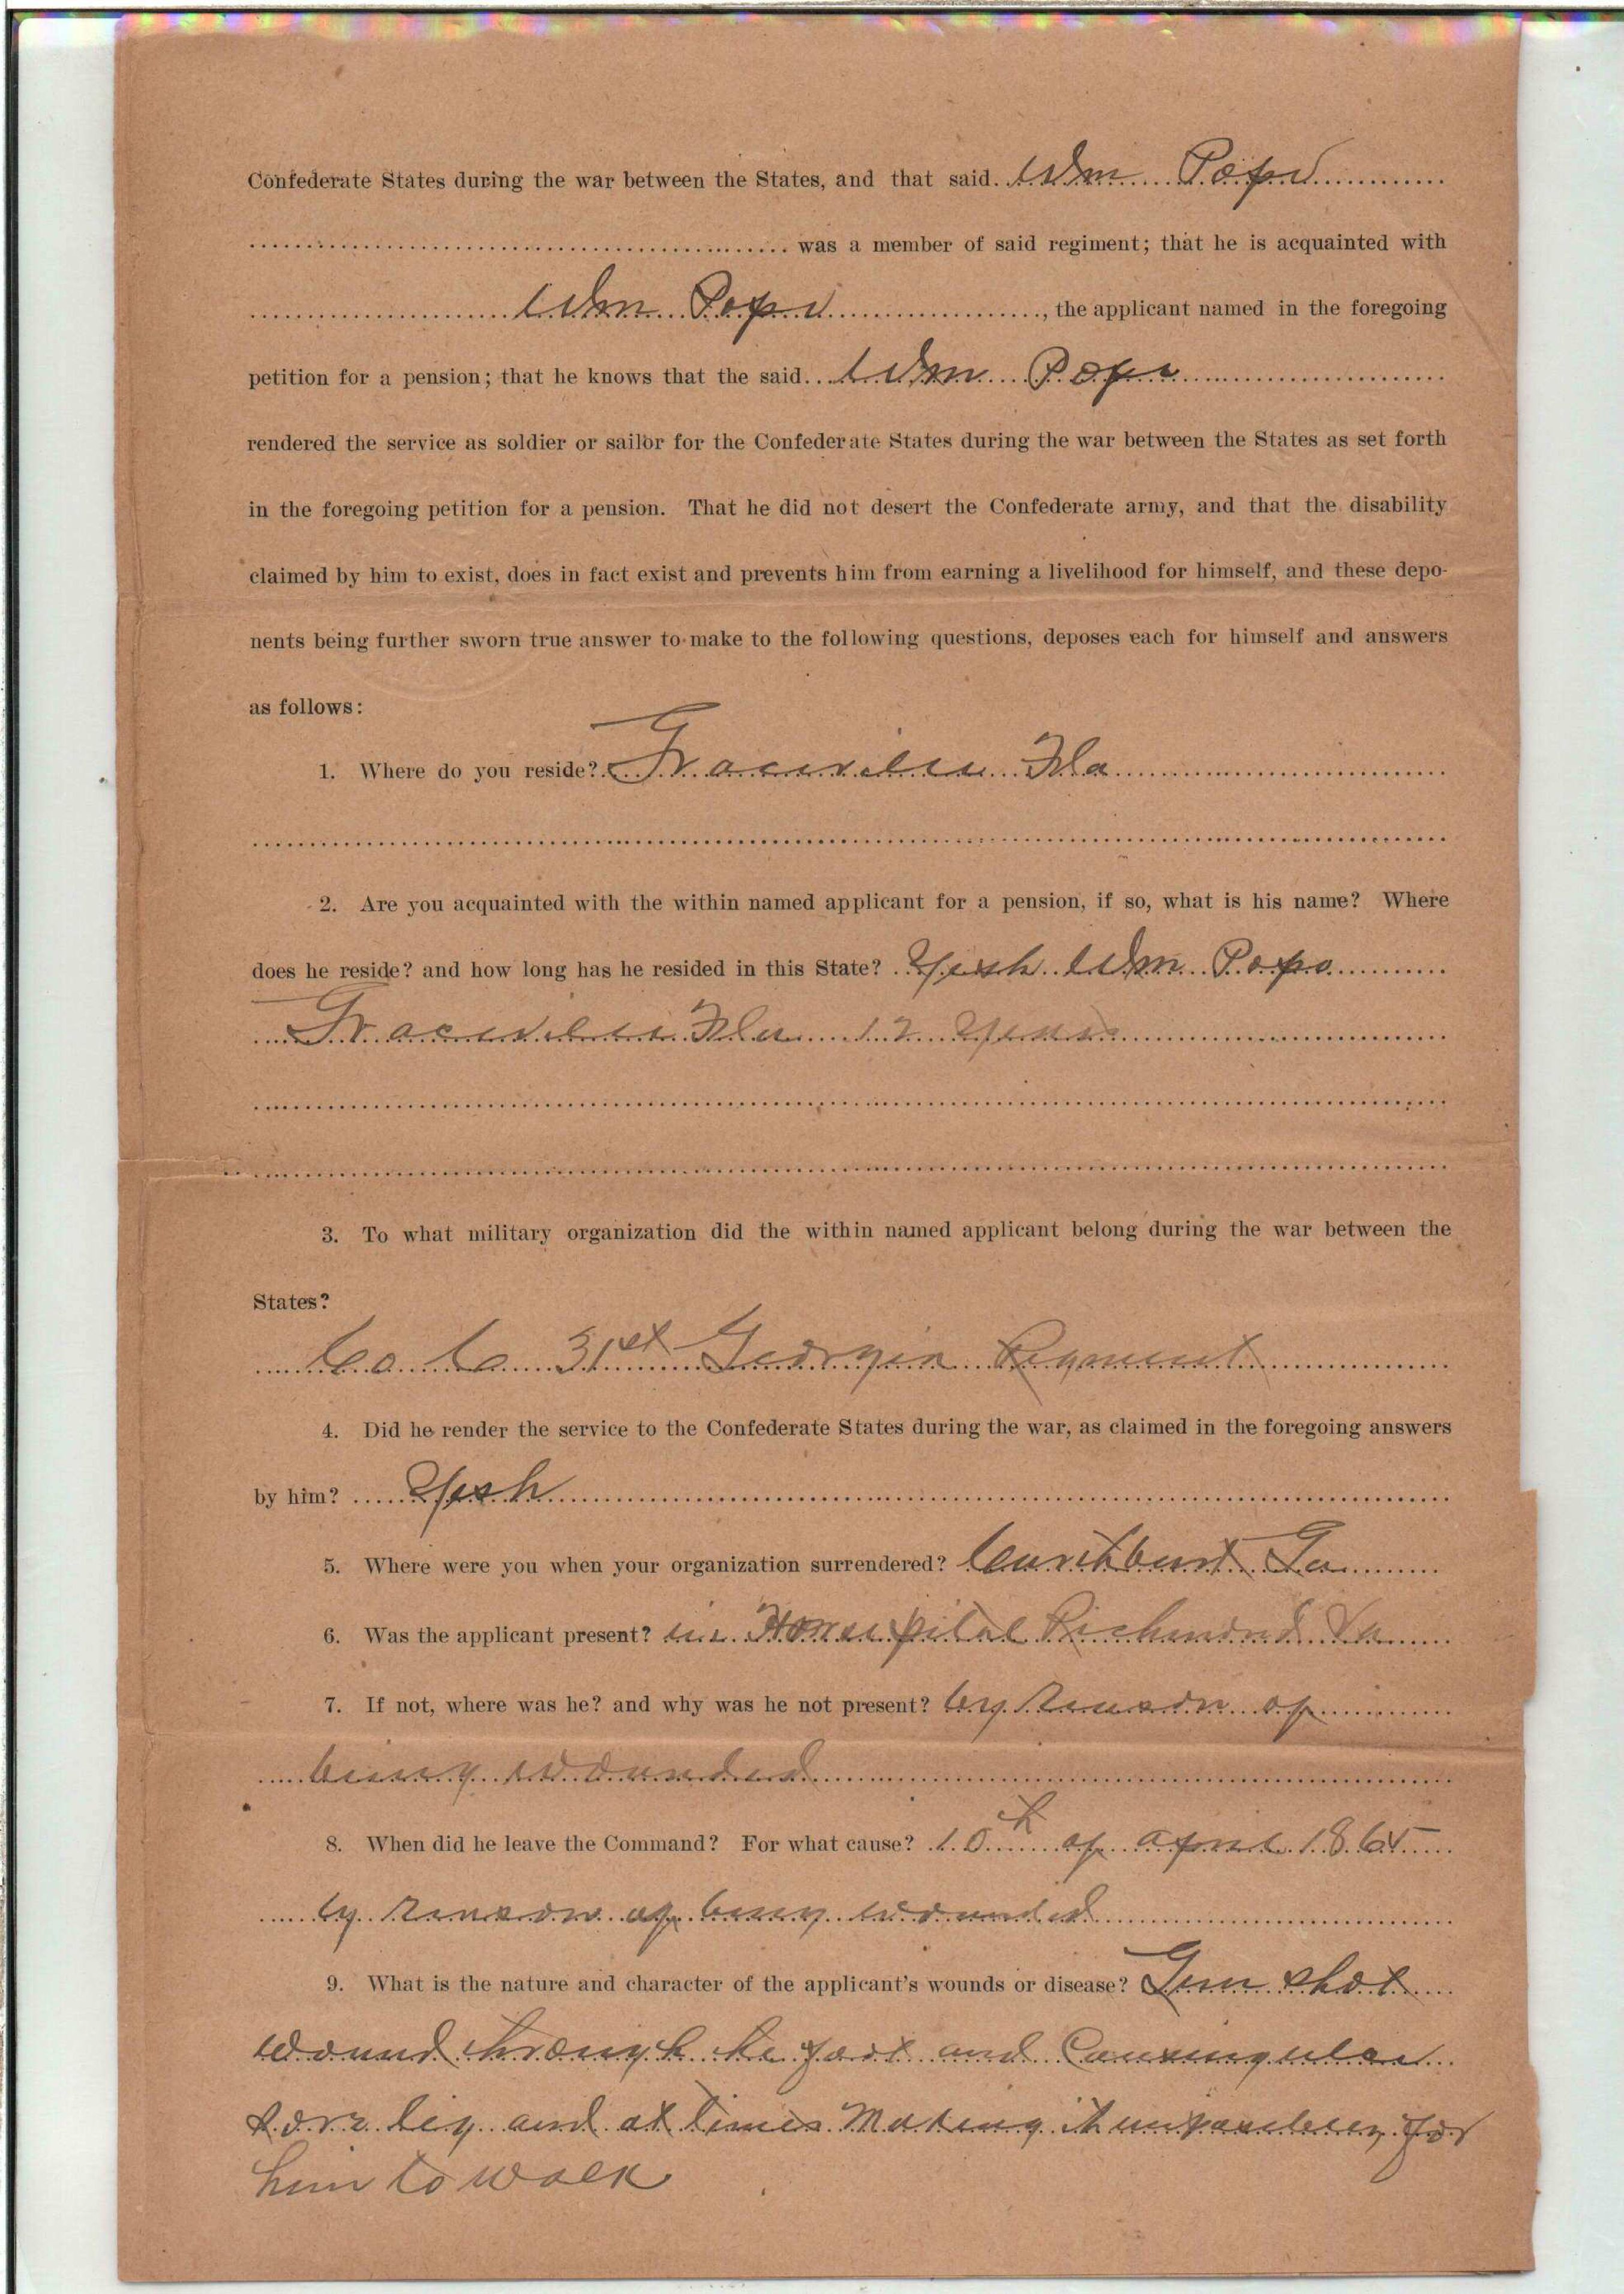 Confederate States during the war between the States, and that said Wm Pope
was a member of said regiment; that he is acquainted with
Wm Pope, the applicant named in the foregoing
petition for a pension; that he knows that the said Wm Pope
rendered the service as soldier or sailor for the Confederate States during the war between the States as set forth
in the foregoing petition for a pension. That he did not desert the Confederate army, and that the disability
claimed by him to exist, does in fact exist and prevents him from earning a livelihood for himself, and these depo-
nents being further sworn true answer to make to the following questions, deposes each for himself and answers
as follows:
1. Where do you reside? Fla
2. Are you acquainted with the within named applicant for a pension, if so, what is his name? Where
does he reside? and how long has he resided in this State? Wm Pope
Fla 12 Years
3. To what military organization did the within named applicant belong during the war between the
States?
Co. C 31st Georgia Regment
4. Did he render the service to the Confederate States during the war, as claimed in the foregoing answers
by him?
5. Where were you when your organization surrendered? Ga
6. Was the applicant present? in Richmond Va
7. If not, where was he? and why was he not present? by Reason of
being wounded
8. When did he leave the Command? For what cause? 10th of April 1865
by Reason of being wounded
9. What is the nature and character of the applicant's wounds or disease? Gun shot
wound through the foot and Causing
sore leg and at times Making it for
him to walk